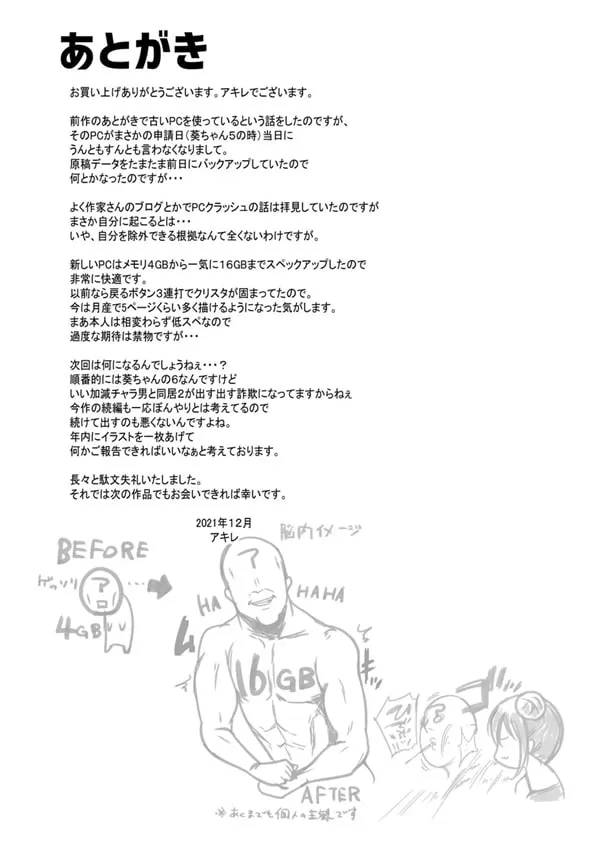 あとがき
お買い上げありがとうございます。アキレでございます。
前作のあとがきで古いPCを使っているという話をしたのですが、
そのPCがまさかの申請日(葵ちゃん5の時)当日に
うんともすんとも言わなくなりまして。
原稿データをたまたま前日にバックアップしていたので
何とかなったのですが・・・
よく作家さんのブログとかでPCクラッシュの話は拝見していたのですが
まさか自分に起こるとは・・・
いや、自分を除外できる根拠なんて全くないわけですが。
新しいPCはメモリ4GBから一気に16GBまでスペックアップしたので
非常に快適です。
以前なら戻るボタン3連打でクリスタが固まってたので。
今は月産で5ページくらい多く描けるようになった気がします。
まあ本人は相変わらず低スペなので
過度な期待は禁物ですが・・・
次回は何になるんでしょうねぇ・・・?
順番的には葵ちゃんの6なんですけど
いい加減チャラ男と同居2が出す出す詐欺になってますからねぇ
今作の続編も一応ぼんやりとは考えてるので
続けて出すのも悪くないんですよね。
年内にイラストを一枚あげて
何かご報告できればいいなぁと考えております。
長々と駄文失礼いたしました。
それでは次の作品でもお会いできれば幸いです。
2021年12月
アキレ
脳内イメージ
BEFORE
ゲッソリ
ア
4GB
?
HA
HAHA
ムキ
16GB
AFTER
※あくまでも個人の主観です